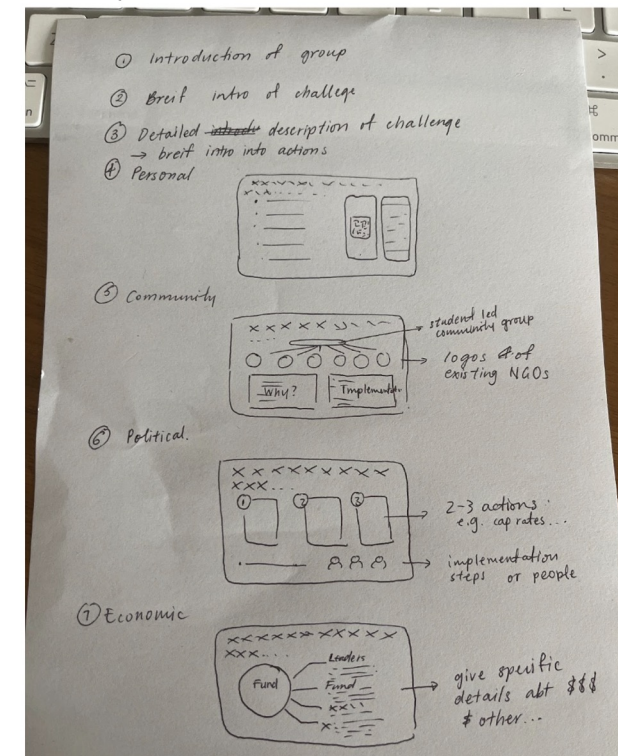 ① Introduction of group
② Breif intro of challege
③ Detailed description of challenge
→ breif intro into actions
④ Personal
⑤ Community
student led
community group
→ logos of
existing NGOs
Why?
Implementation
⑥ Political.
① ② ③
→ 2-3 actions
e.g. cap rates...
→ implementation
steps or people
⑦ Economic
XXXXXXX XXXXX
XXX....
Lenders
Fund
Fund
→ give specific
details abt $$$
$ other...